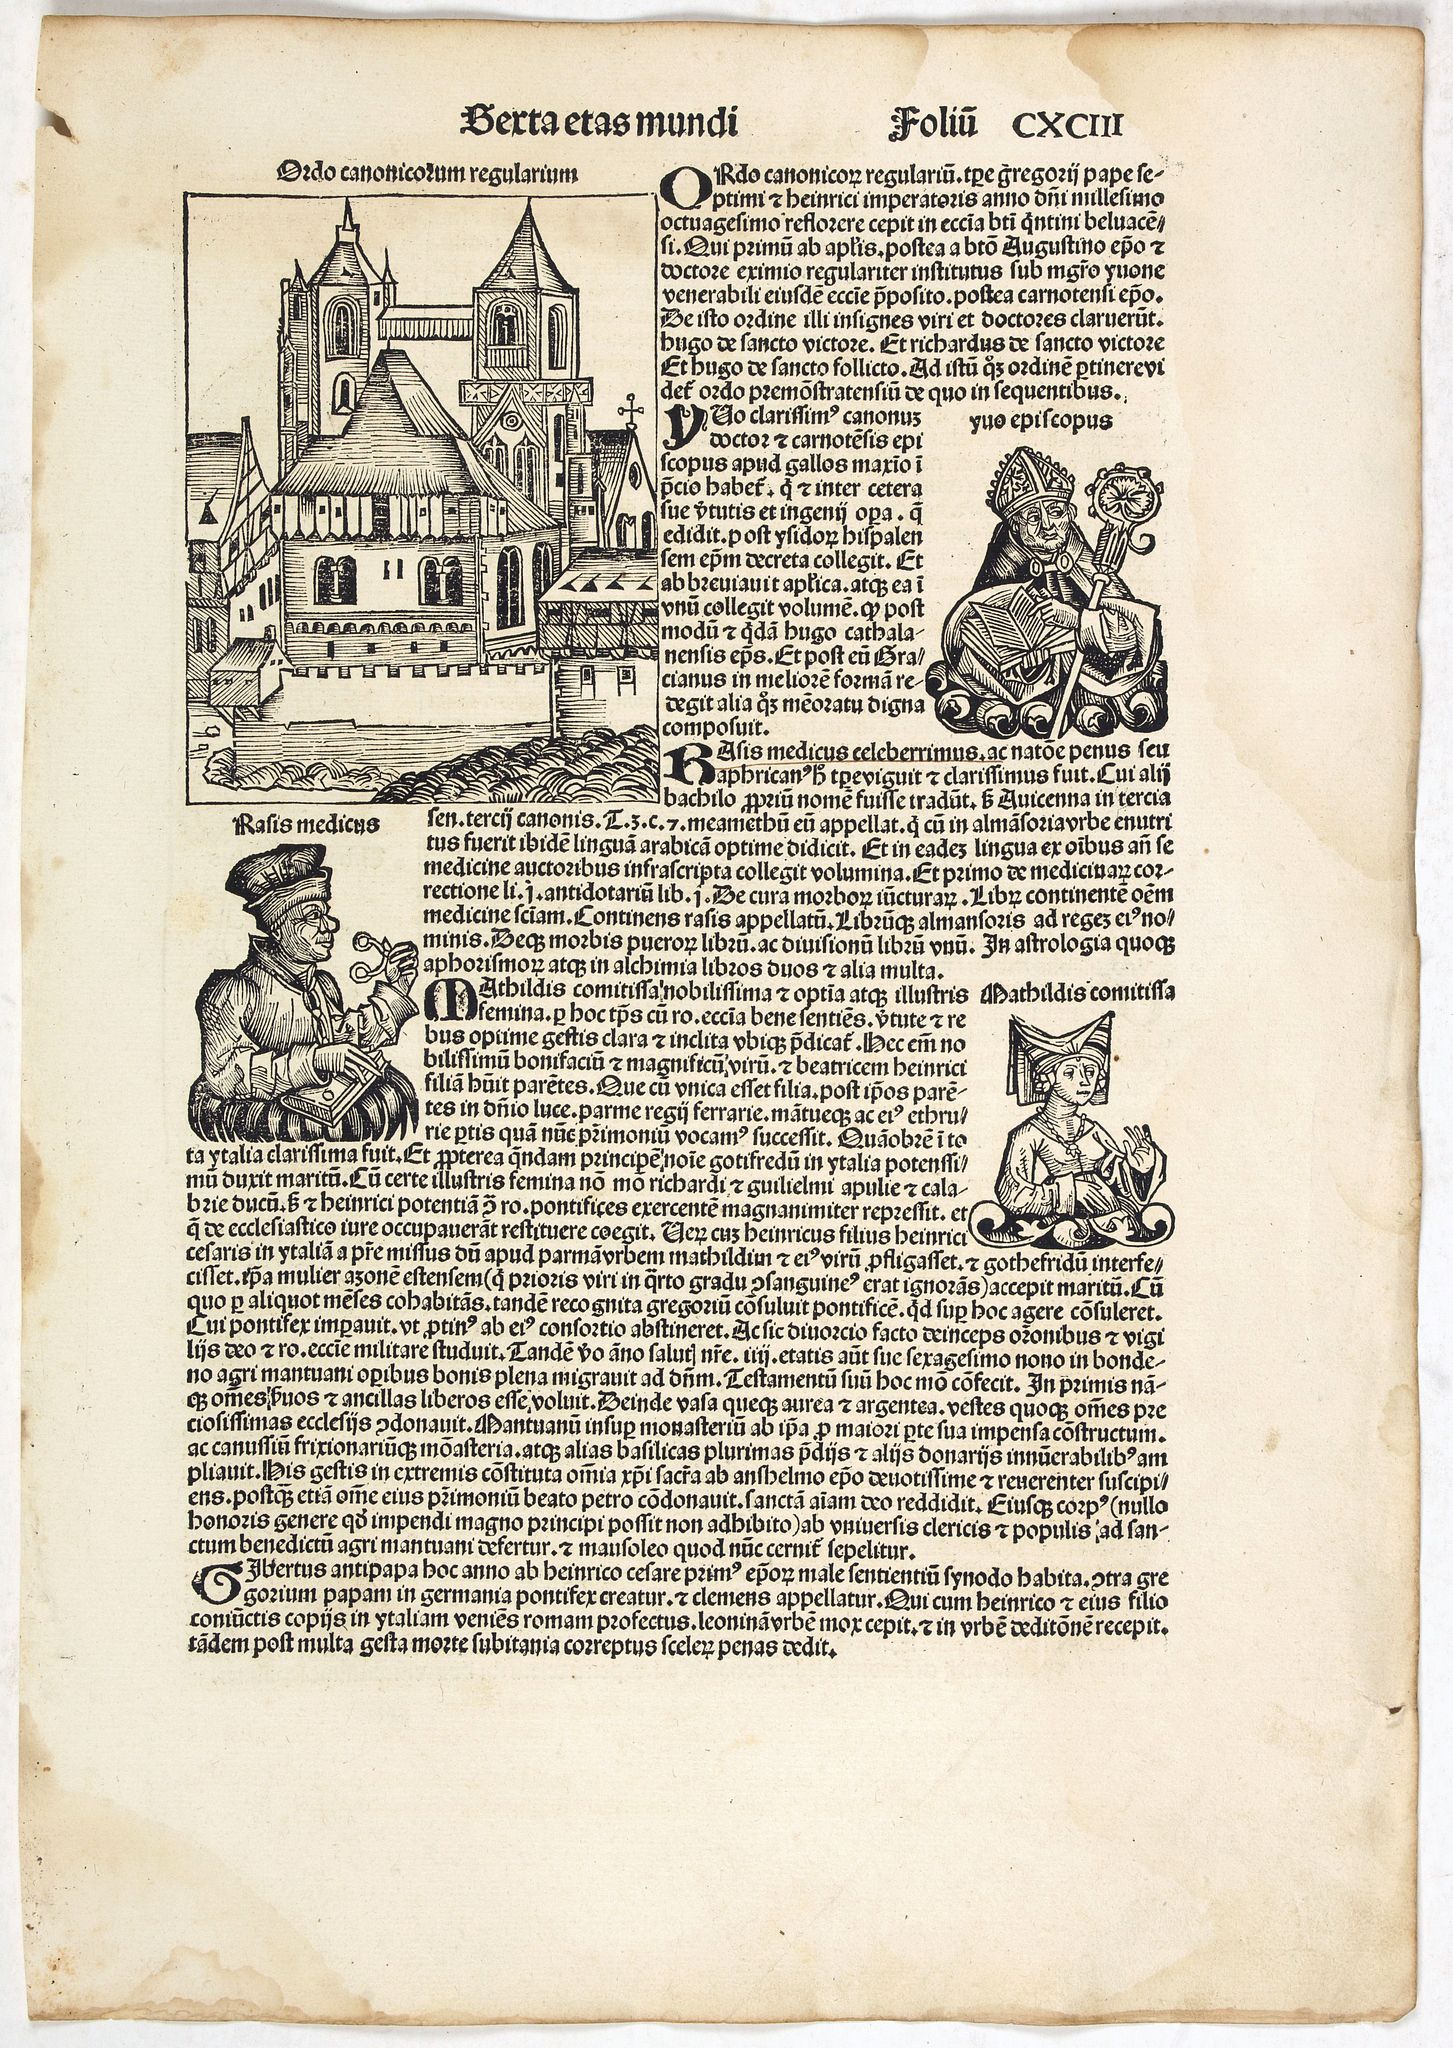 Sexta etas mundi
Foliū CXCIII
Ordo canonicorum regularium
ORdo canonicoꝝ regulariū. tꝑe gregorij pape se-
ptimi ⁊ heinrici imperatoris anno dn̄i millesimo
octuagesimo reflorere cepit in eccīa btī q̄ntini beluacē-
si. Qui primū ab apl'is. postea a btō Augustino ep̄o ⁊
doctore eximio regulariter institutus sub mgr̄o yuone
venerabili eiusdē eccīe p̄posito. postea carnotensi ep̄o.
De isto ordine illi insignes viri et doctores claruerūt.
hugo de sancto victore. Et richardus de sancto victore
Et hugo de sancto follicto. Ad istū q̄ꝫ ordinē ꝑtinere vi
det᷑ ordo premōstratensiū de quo in sequentibus.
YUo clarissimꝰ canonuꝫ
doctor ⁊ carnotēsis epi
scopus apud gallos maxīo ī
p̄cio habet᷑. q̄ ⁊ inter cetera
sue v̄tutis et ingenij oꝑa. q̄
edidit. post ysidoꝝ hispalen
sem ep̄m decreta collegit. Et
abbreviauit apl'ica. atqꝫ ea ī
vnū collegit volumē. qꝫ post
modū ⁊ q̄dā hugo cathala-
nensis ep̄s. Et post eū Gra/
cianus in meliorē formā re-
degit alia q̄ꝫ mēoratu digna
composuit.
yuo episcopus
RAsis medicus celeberrimus. ac natōe penus seu
aphricanꝰ h̄ tꝑe viguit ⁊ clarissimus fuit. Cui alij
bachilo ꝓpriū nomē fuisse tradūt. s̄ Auicenna in tercia
sen. tercij canonis. T. 3. c. 7. meamethū eū appellat. q̄ cū in almāsoria vrbe enutri
tus fuerit ibidē linguā arabicā optime didicit. Et in eadeꝫ lingua ex oībus an̄ se
medicine auctoribus infrascripta collegit volumina. Et primo de medicinaꝝ cor-
rectione li. j. antidotariū lib. j. De cura morboꝝ iūcturaꝝ. Libꝝ continentē oēm
medicine scīam. Continens rasis appellatū. Librūqꝫ almansoris ad regeꝫ eiꝰ no/
minis. Deqꝫ morbis pueroꝝ librū. ac diuisionū librū vnū. In astrologia quoqꝫ
aphorismoꝝ atqꝫ in alchimia libros duos ⁊ alia multa.
Rasis medicus
MAthildis comitissa nobilissima ⁊ optīa atqꝫ illustris
femina. ꝑ hoc tp̄s cū ro. eccīa bene sentiēs. v̄tute ⁊ re
bus optime gestis clara ⁊ inclita vbiqꝫ p̄dicat᷑. Hec em̄ no
bilissimū bonifaciū ⁊ magnificū virū. ⁊ beatricem heinrici
filiā hūit parētes. Que cū vnica esset filia. post ip̄os parē-
tes in dn̄io luce. parme regij ferrarie. mātueqꝫ ac eiꝰ ethru/
rie ꝑtis quā nūc pr̄imoniū vocamꝰ successit. Quāobrē ī to
ta ytalia clarissima fuit. Et ꝓpterea q̄ndam principē noīe gotifredū in ytalia potenssi/
mū duxit maritū. Cū certe illustris femina nō mō richardi ⁊ guilielmi apulie ⁊ cala-
brie ducū. s̄ ⁊ heinrici potentiā ꝯ̄ ro. pontifices exercentē magnanimiter repressit. et
q̄ de ecclesiastico iure occupauerāt restituere coegit. Ueꝝ cuꝫ heinricus filius heinrici
cesaris in ytaliā a pr̄e missus dū apud parmā vrbem mathildim ⁊ eiꝰ virū ꝓfligasset. ⁊ gothefridū interfe-
cisset. ip̄a mulier azonē estensem (q̄ prioris viri in q̄rto gradu ꝯsanguineꝰ erat ignorās) accepit maritū. Cū
quo ꝑ aliquot mēses cohabitās. tandē recognita gregoriū cōsuluit pontificē. qd̄ suꝑ hoc agere cōsuleret.
Cui pontifex imꝑauit. vt ꝓtinꝰ ab eiꝰ consortio abstineret. Ac sic diuorcio facto deinceps or̄onibus ⁊ vigi
lijs deo ⁊ ro. eccīe militare studuit. Tandē v̄o āno saluꝭ nr̄e. iiij. etatis aūt sue sexagesimo nono in bonde-
no agri mantuani oꝑibus bonis plena migrauit ad dn̄m. Testamentū suū hoc mō cōfecit. In primis nā-
qꝫ om̄es s̄uos ⁊ ancillas liberos esse voluit. Deinde vasa queqꝫ aurea ⁊ argentea. vestes quoqꝫ om̄es pre
ciosissimas ecclesijs ꝯdonauit. Mantuanū insuꝑ monasteriū ab ip̄a ꝓ maiori ꝑte sua impensa cōstructum.
ac canussiū frixionariūqꝫ mōasteria. atqꝫ alias basilicas plurimas p̄dijs ⁊ alijs donarijs innūerabilibꝰ am
pliauit. His gestis in extremis cōstituta om̄ia xp̄i sacr̄a ab anshelmo ep̄o deuotissime ⁊ reuerenter suscipi/
ens. postqꝫ̄ etiā om̄e eius pr̄imoniū beato petro cōdonauit. sanctā aīam deo reddidit. Eiusqꝫ corpꝰ (nullo
honoris genere qd̄ impendi magno principi possit non adhibito) ab vniuersis clericis ⁊ populis ad san-
ctum benedictū agri mantuani defertur. ⁊ mausoleo quod nūc cernit᷑ sepelitur.
Mathildis comitissa
GIbertus antipapa hoc anno ab heinrico cesare primꝰ ep̄oꝝ male sentientiū synodo habita. ꝯtra gre
gorium papam in germania pontifex creatur. ⁊ clemens appellatur. Qui cum heinrico ⁊ eius filio
coniūctis copijs in ytaliam veniēs romam profectus. leoninā vrbēm mox cepit. ⁊ in vrbē deditōnē recepit.
tādem post multa gesta morte subitania correptus sceleꝝ penas dedit.